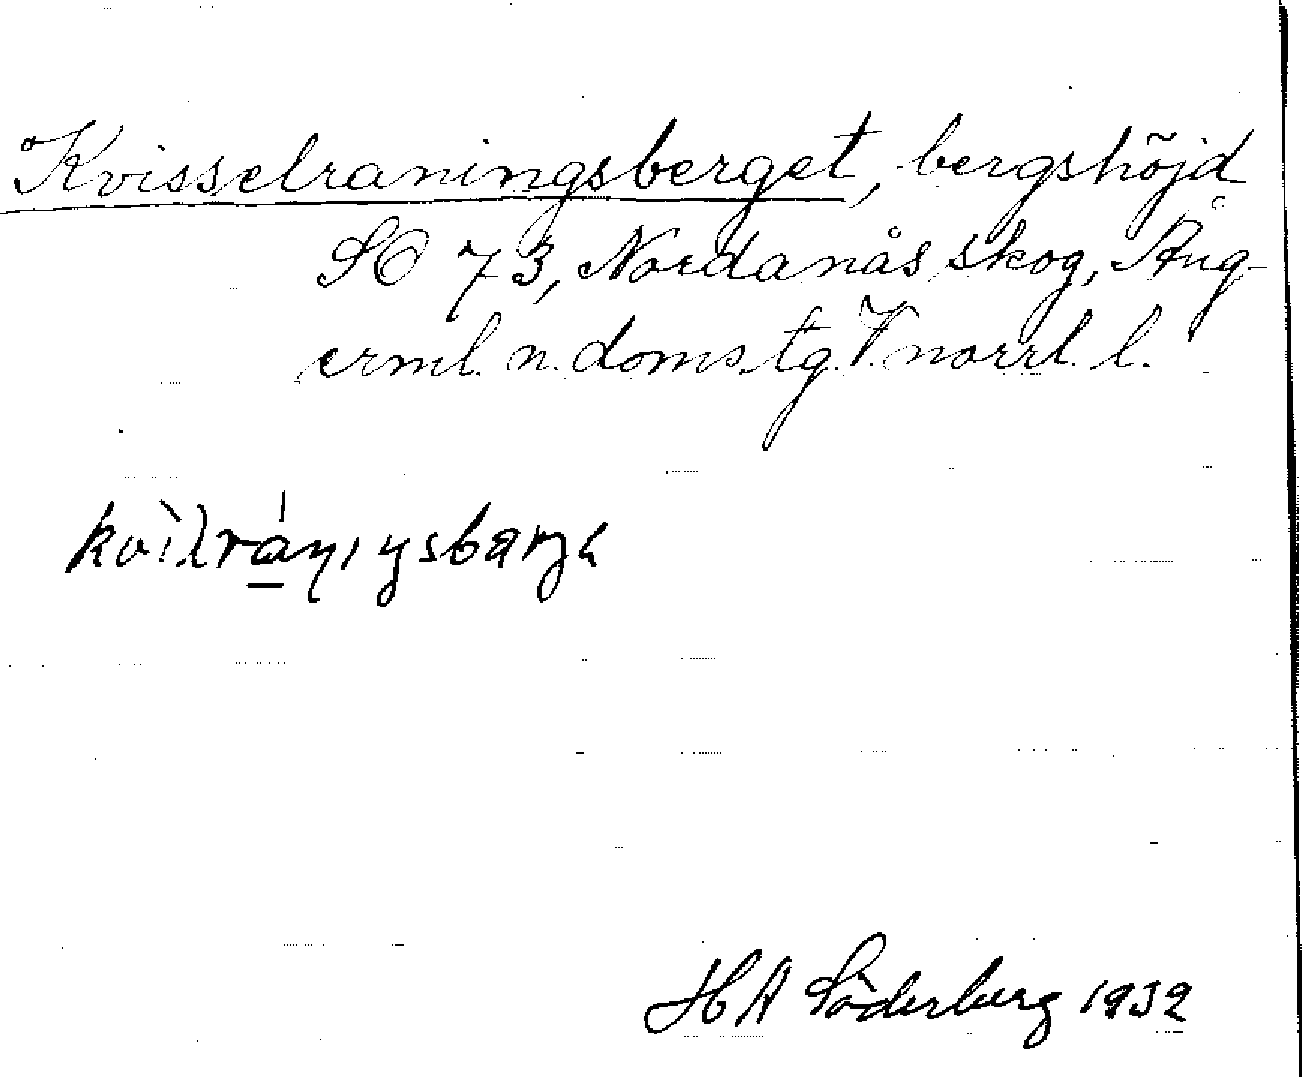 Kvisselraningsberget, bergshöjd
SO 73, Nordanås skog, Ång-
erml. n. doms.tg. V. norrl. l.
HA Söderberg 1932